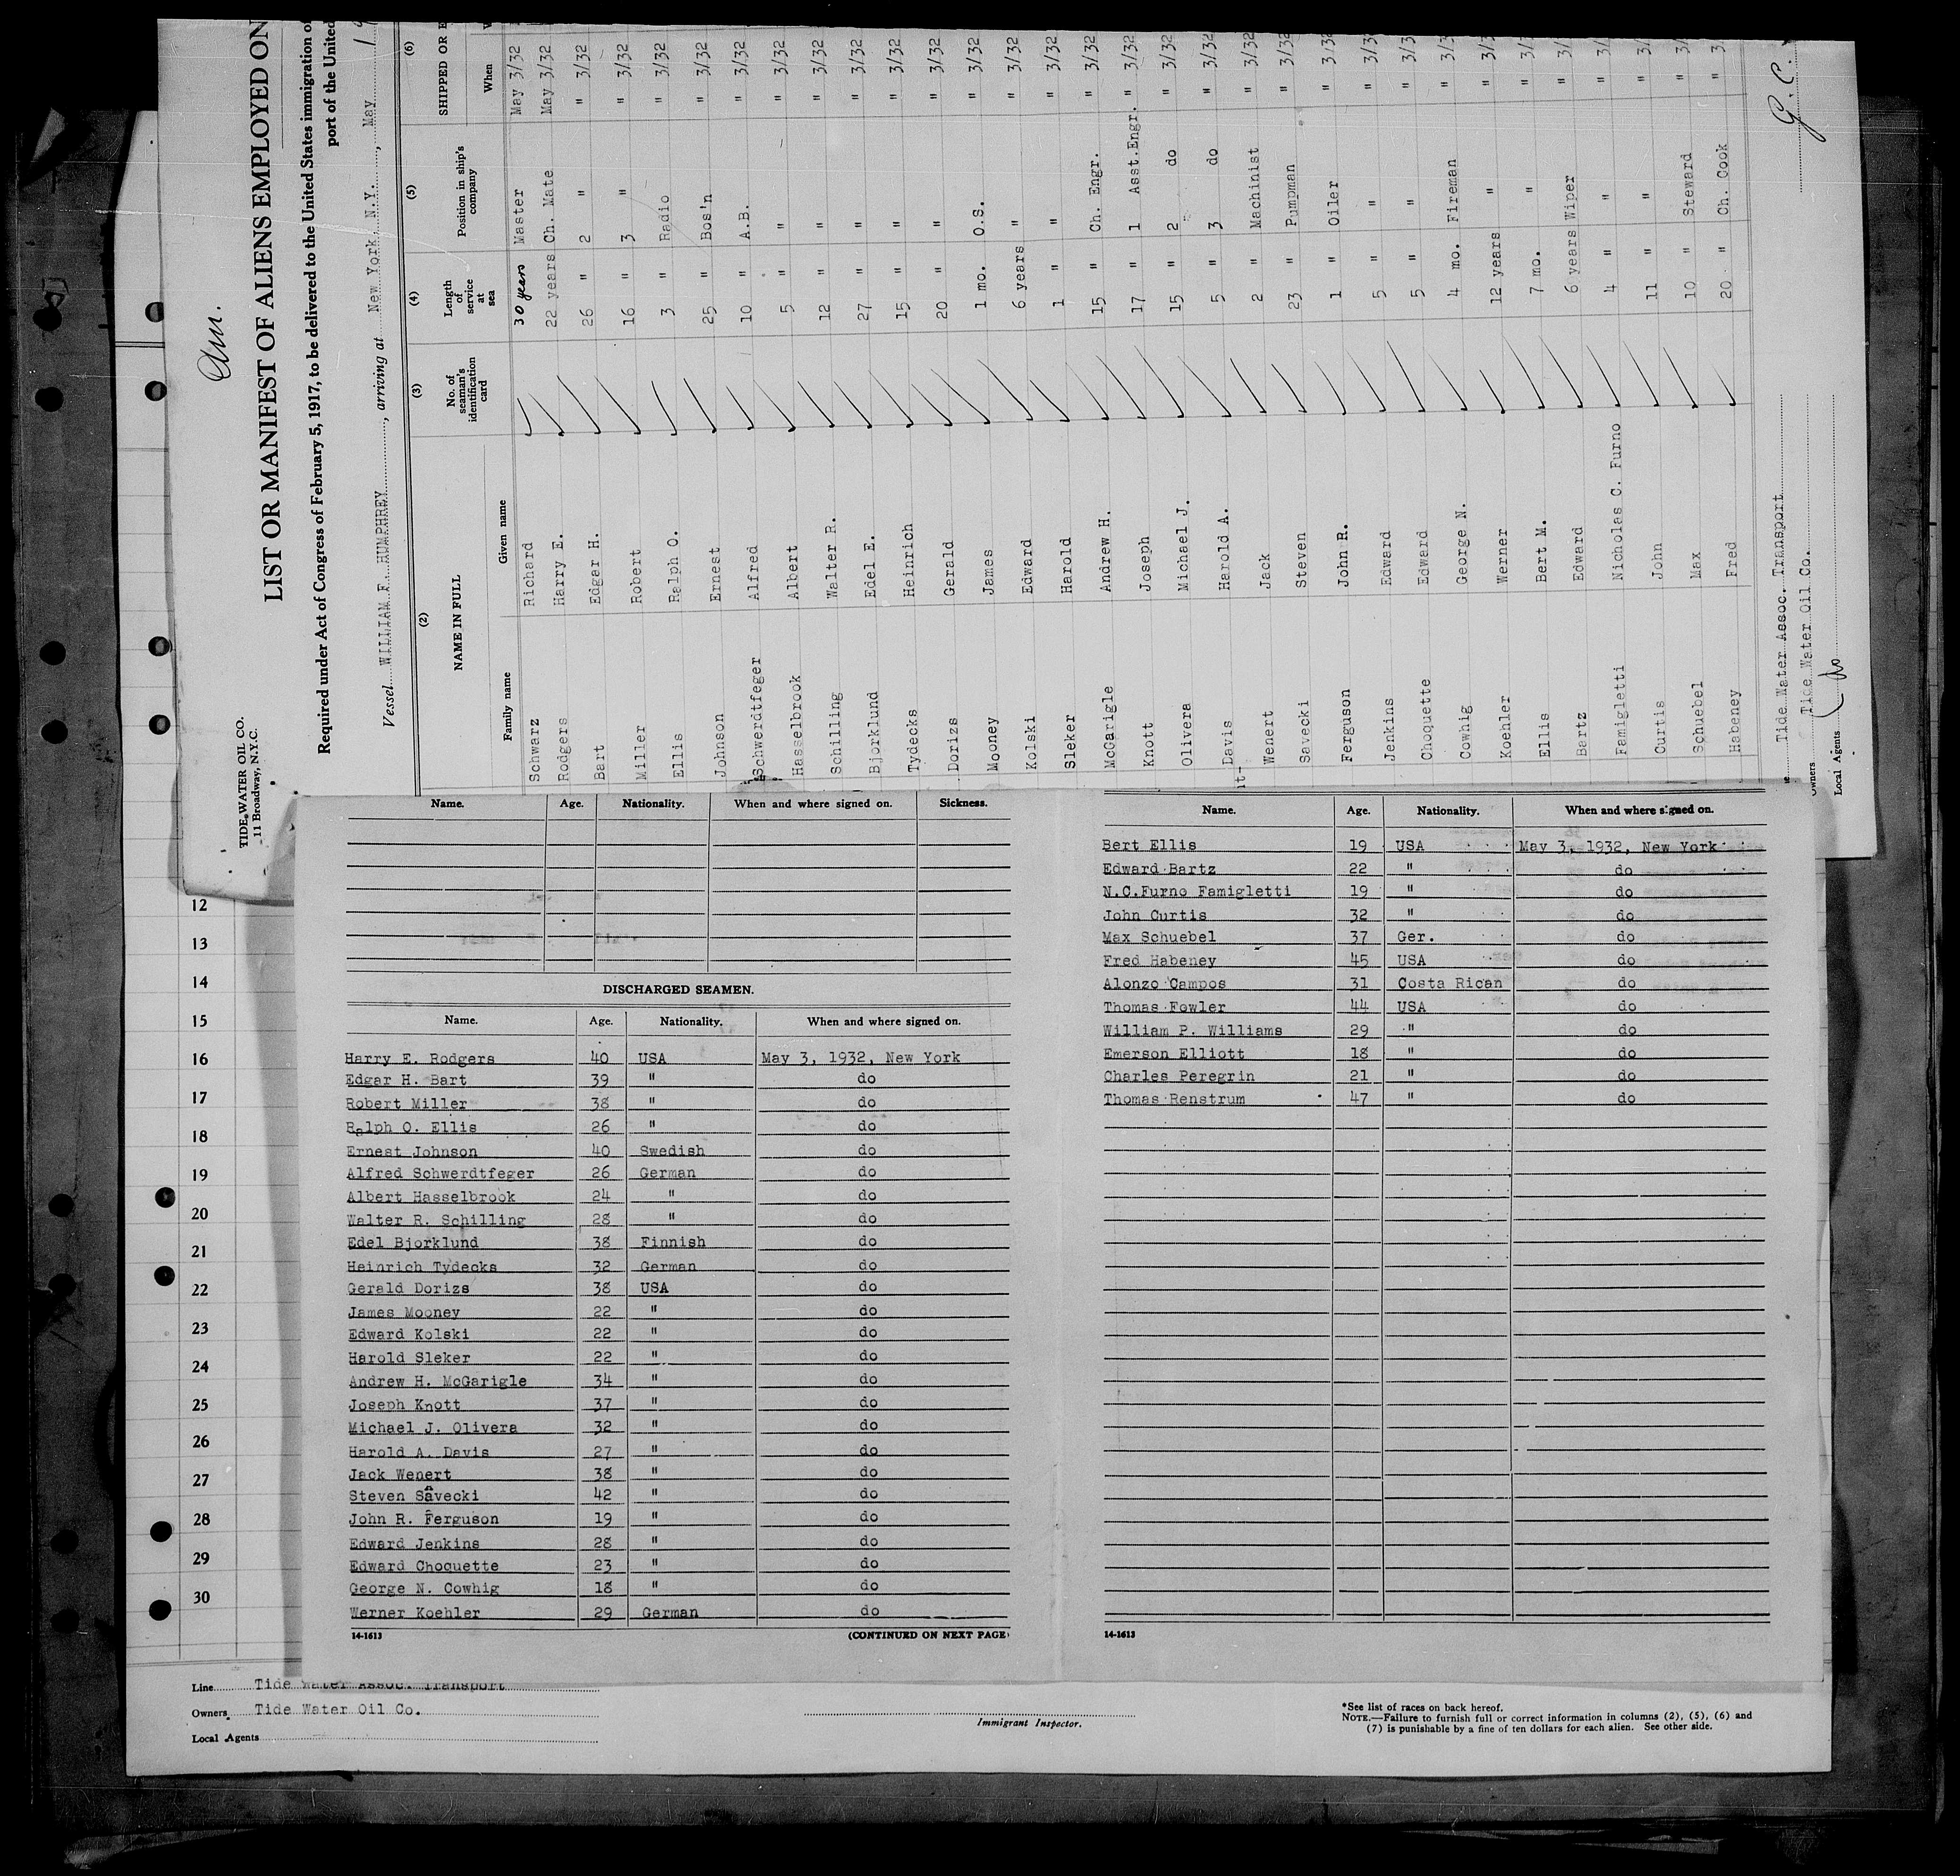 Am.
TIDE WATER OIL CO.
11 Broadway, N.Y.C.
LIST OR MANIFEST OF ALIENS EMPLOYED ON
Required under Act of Congress of February 5, 1917, to be delivered to the United States immigration
port of the United
Vessel WILLIAM F. HUMPHREY, arriving at New York, N.Y., May
(2) (3) (4) (5) (6)
NAME IN FULL No. of seaman's identification card Length of service at sea Position in ship's company SHIPPED OR
Family name Given name When
Schwarz Richard 30 years Master May 3/32
Rodgers Harry E. 22 years Ch. Mate May 3/32
Bart Edgar H. 26 " 2 " " 3/32
Miller Robert 16 " 3 " " 3/32
Ellis Ralph O. 3 " Radio " 3/32
Johnson Ernest 25 " Bos'n " 3/32
Schwerdtfeger Alfred 10 " A.B. " 3/32
Hasselbrook Albert 5 " " " 3/32
Schilling Walter R. 12 " " " 3/32
Bjorklund Edel E. 27 " " " 3/32
Tydecks Heinrich 15 " " " 3/32
Dorizs Gerald 20 " " " 3/32
Mooney James 1 mo. O.S. " 3/32
Kolski Edward 6 years " " 3/32
Sleker Harold 1 " " " 3/32
McGarigle Andrew H. 15 " Ch. Engr. " 3/32
Knott Joseph 17 " 1 Asst.Engr. " 3/32
Olivera Michael J. 15 " 2 do " 3/32
Davis Harold A. 5 " 3 do " 3/32
Wenert Jack 2 " Machinist " 3/32
Savecki Steven 23 " Pumpman " 3/32
Ferguson John R. 1 " Oiler " 3/32
Jenkins Edward 5 " " "
Choquette Edward 5 " " "
Cowhig George N. 4 mo. Fireman "
Koehler Werner 12 years " "
Ellis Bert M. 7 mo. " "
Bartz Edward 6 years Wiper "
Famigletti Nicholas C. Furno 4 " " "
Curtis John 11 " " "
Schuebel Max 10 " Steward "
Habeney Fred 20 " Ch. Cook "
Tide Water Assoc. Transport
Owners Tide Water Oil Co.
Local Agents
Name. Age. Nationality. When and where signed on. Sickness.
DISCHARGED SEAMEN.
Name. Age. Nationality. When and where signed on.
Harry E. Rodgers 40 USA May 3, 1932, New York
Edgar H. Bart 39 " do
Robert Miller 38 " do
Ralph O. Ellis 26 " do
Ernest Johnson 40 Swedish do
Alfred Schwerdtfeger 26 German do
Albert Hasselbrook 24 " do
Walter R. Schilling 28 " do
Edel Bjorklund 38 Finnish do
Heinrich Tydecks 32 German do
Gerald Dorizs 38 USA do
James Mooney 22 " do
Edward Kolski 22 " do
Harold Sleker 22 " do
Andrew H. McGarigle 34 " do
Joseph Knott 37 " do
Michael J. Olivera 32 " do
Harold A. Davis 27 " do
Jack Wenert 38 " do
Steven Savecki 42 " do
John R. Ferguson 19 " do
Edward Jenkins 28 " do
Edward Choquette 23 " do
George N. Cowhig 18 " do
Werner Koehler 29 German do
14-1613 (CONTINUED ON NEXT PAGE)
Name. Age. Nationality. When and where signed on.
Bert Ellis 19 USA May 3, 1932, New York
Edward Bartz 22 " do
N.C.Furno Famigletti 19 " do
John Curtis 32 " do
Max Schuebel 37 Ger. do
Fred Habeney 45 USA do
Alonzo Campos 31 Costa Rican do
Thomas Fowler 44 USA do
William P. Williams 29 " do
Emerson Elliott 18 " do
Charles Peregrin 21 " do
Thomas Renstrum 47 " do
14-1613
12
13
14
15
16
17
18
19
20
21
22
23
24
25
26
27
28
29
30
Line Tide Water Assoc. Transport
Owners Tide Water Oil Co.
Local Agents
Immigrant Inspector.
*See list of races on back hereof.
NOTE.—Failure to furnish full or correct information in columns (2), (5), (6) and
(7) is punishable by a fine of ten dollars for each alien. See other side.